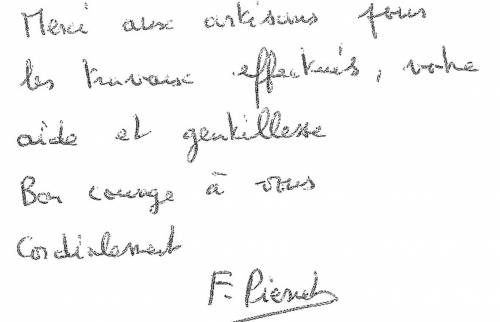 Merci aux artisans pour
les travaux effectués, votre
aide et gentillesse
Bon courage à vous
Cordialement
F.